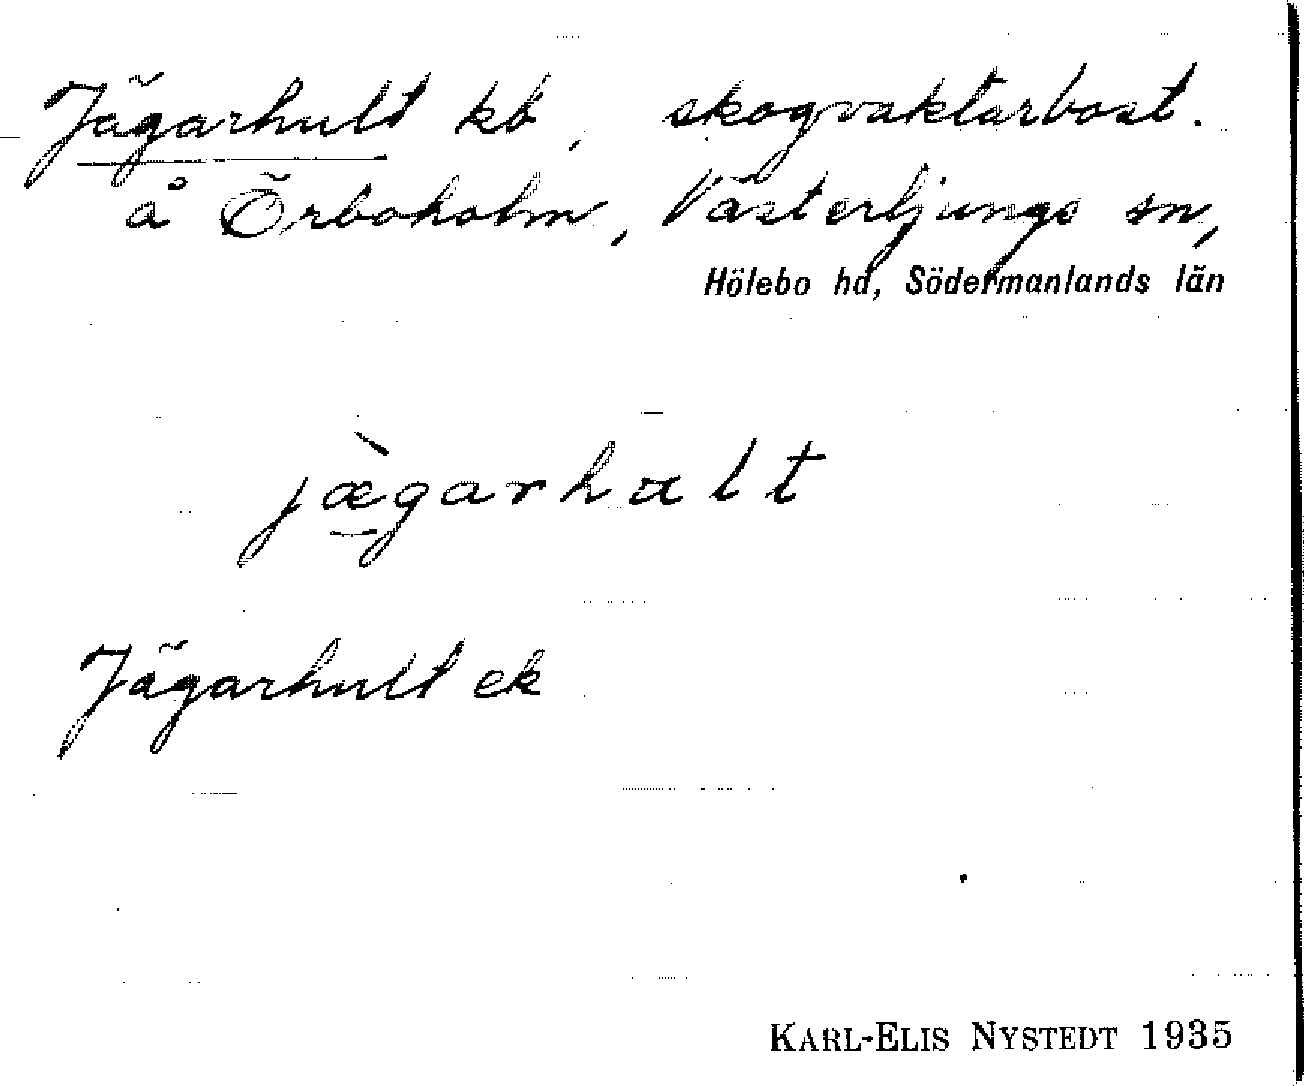 Jägarhult kb, skogvaktarbost.
å Örboholm, Västerljungs sn,
Hölebo hd, Södermanlands län
jæ̀garhult
Jägarhult ek
KARL-ELIS NYSTEDT 1935